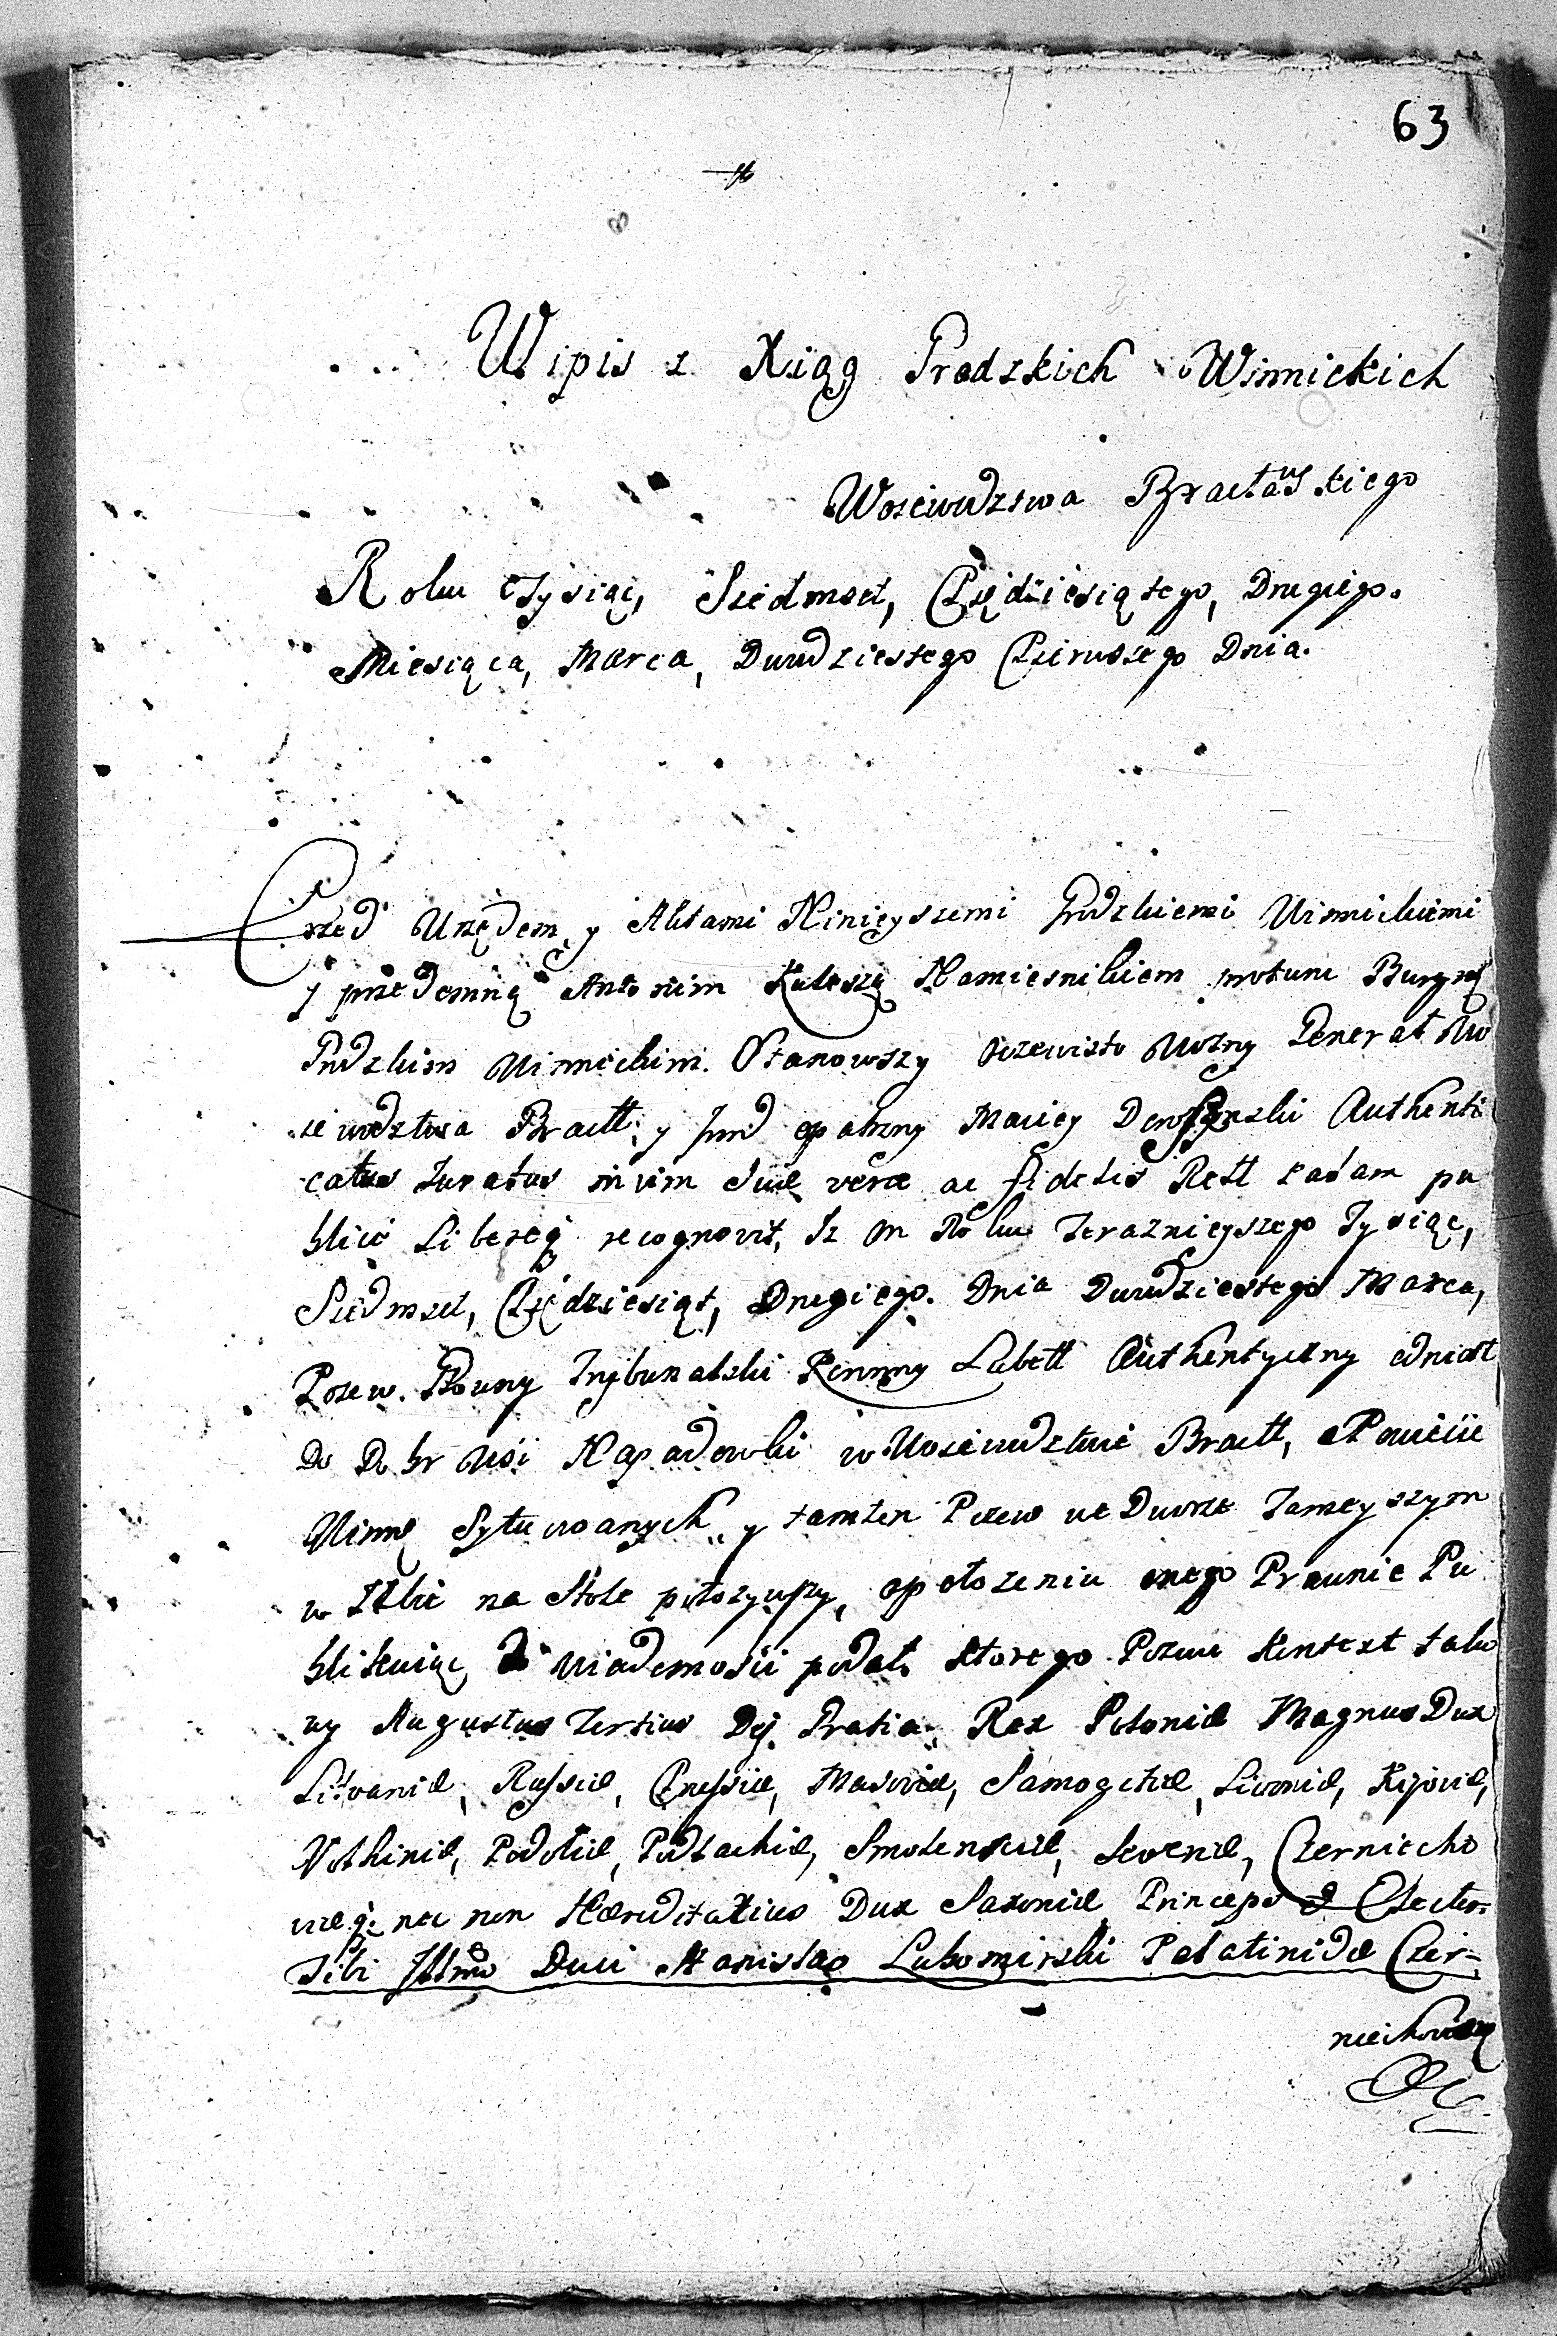 63
Wipis z Xiąg Grodzkich Winnickich
Wojewodztwa Bracławskiego
Roku Tysiąc, Siedmset, Piędziesiątego, Drugiego.
Miesiąca, Marca, Dwudziestego Pierwszego Dnia.
Przed Urzędem y Aktami Ninieyszemi Grodzkiemi Winnickiemi
y przedemną Antonim Kuleszą Namiesnikiem protunc Burgrą
Grodzkim Winnickim. Stanowszy Oczewisto Wozny Generał Wo
iewodztwa Bracłł: y Jnnd opatrzny Maciey Authenti
catus Juratus in vim Suæ veræ ac fidelis Rełł zadam pu
blice Libereq recognovit, Iz on Roku Teraznieyszego Tysiąc,
Siedmset, Pięćdziesiąt, Drugiego. Dnia Dwudziestego Marca,
Pozew. Głowny Trybunalski Ziemny Lubełł Authentyczny odniosł
Do Dobr Wsi Napadowki w Wojewodztwie Bracłł, a Powiecie
Winnę Sytuowanych y tamten Pozew we Dworze Tameyszym
w Izbie na Stole położywszy, o położeniu onego Prawnie Pu
blikuiąc, do wiadomości podał. ktorego Pozwu Kontext tako
wy Augustus Tertius Dej. Gratia. Rex Poloniæ Magnus Dux
Litvaniæ, Russiæ, Prussiæ, Masoviæ, Samogetiæ, Livoniæ, Kijoviæ,
Volhiniæ, Podoliæ, Podlachiæ, Smolensciæ, Severiæ, Czerniecho
viæq. nec non Hæreditarius Dux Saxoniæ Princeps & Elector.
Tibi Illmo Duci Stanislao Lubomirski Palatinidæ Czer-
niechoviæ